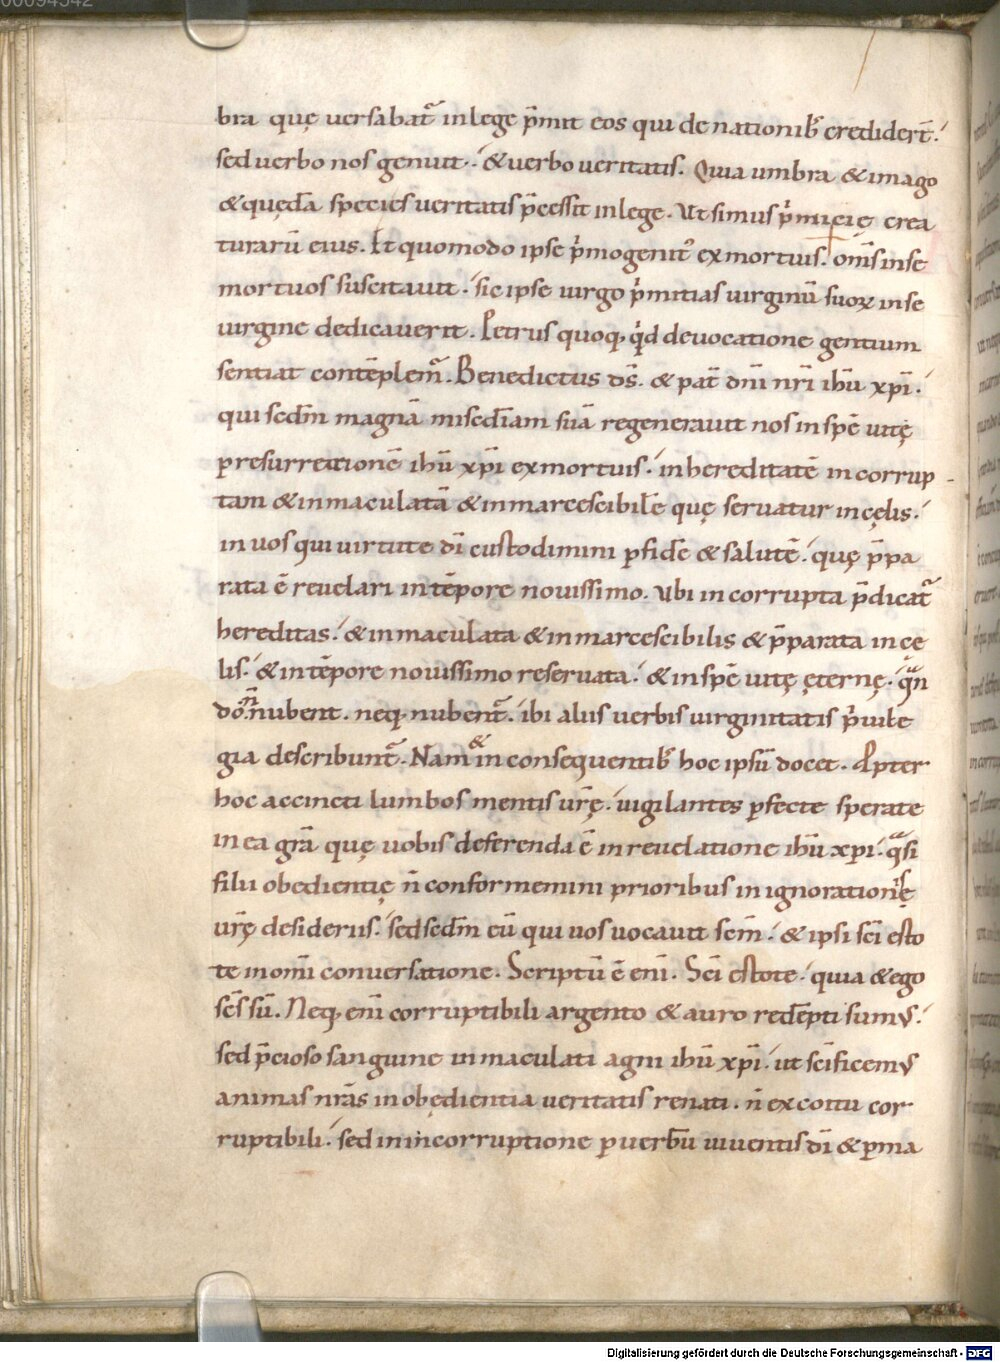 00094542
bra quę uersabat̃ in lege p̃mit eos qui de nationib; credidert̃.
sed uerbo nos genuit. & uerbo ueritatis. Quia umbra & imago
& quędã species ueritatis p̃cessit in lege. Ut simus p̃micię crea
turarũ eius. Et quomodo ipse p̃mogenit᾿ ex mortuis. om̃s in se
mortuos suscitauit. sic ipse uirgo p̃mitias uirginũ suoꝝ in se
uirgine dedicauerit. Petrus quoq; qd̃ de uocatione gentium
sentiat contẽplem̃. Benedictus ds̃. & pat̃ dnĩ nr̃i ihũ xp̃i.
qui scd̃m magnã misc̃diam suã regenerauit nos in spẽ uitę
p resurrectionẽ ihũ xp̃i ex mortuis. in hereditatẽ incorrup
tam & inmaculatã & inmarcescibilẽ quę seruatur in cęlis.
in uos qui uirtute dĩ custodimini p fidẽ & salutẽ. quę p̃pa
rata ẽ reuelari in tẽpore nouissimo. Ubi incorrupta p̃dicat̃
hereditas. & inmaculata & inmarcescibilis & p̃parata in cę
lis. & in tẽpore nouissimo reseruata. & in spẽ uitę ęternę. qñ
nubent. neq; nubent̃. ibi aliis uerbis uirginitatis p̃uile
gia describunt̃. Nam & in consequentib; hoc ipsũ docet. Ppter
hoc accincti lumbos mentis ur̃ę. uigilantes pfecte sperate
in ea grã quę uobis deferenda ẽ in reuelatione ihũ xp̃i. q̃si
filii obedientię ñ conformemini prioribus in ignorationis
ur̃ę desideriis. sed scd̃m eũ qui uos uocauit scm̃. & ipsi scĩ esto
te in omĩ conuersatione. Scriptũ ẽ enĩ. Scĩ estote. quia & ego
scs̃ sũ. Neq; enĩ corruptibili argento & auro redẽpti sumus.
sed p̃cioso sanguine inmaculati agni ihũ xp̃i. ut scĩficemus
animas nrãs in obędientia ueritatis renati. ñ ex coitu cor
ruptibili. sed in incorruptione p uerbũ uiuentis dĩ & pma
Digitalisierung gefördert durch die Deutsche Forschungsgemeinschaft - DFG